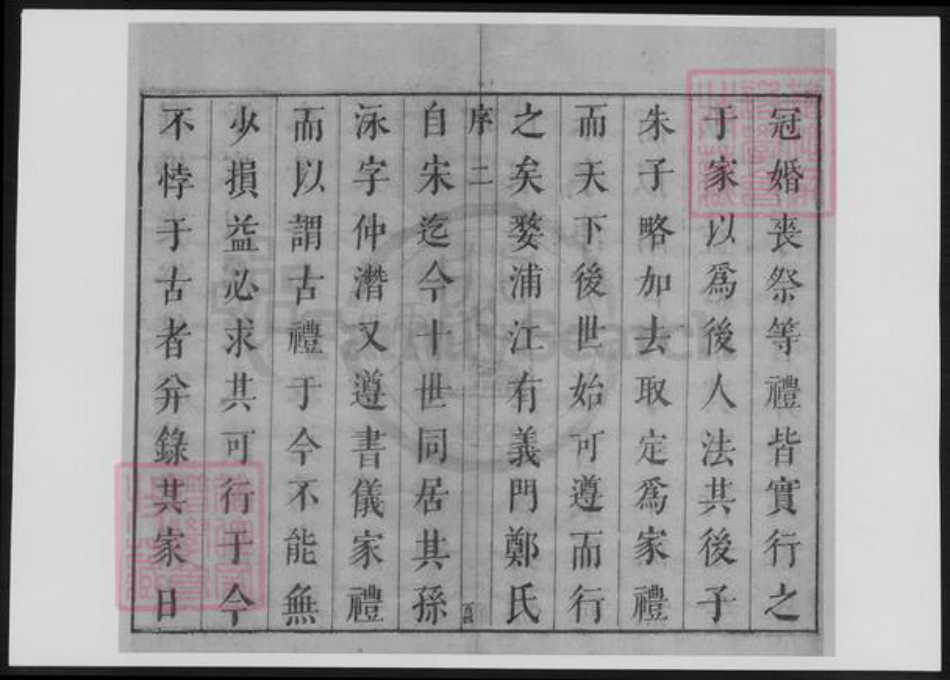 冠婚喪祭等禮皆實行之
于家以爲後人法其後子
朱子略加去取定爲家禮
而天下後世始可遵而行
之矣婺浦江有義門鄭氏
序 二
自宋迄今十世同居其孫
泳字仲潛又遵書儀家禮
而以謂古禮于今不能無
少損益必求其可行于今
不悖于古者并錄其家日